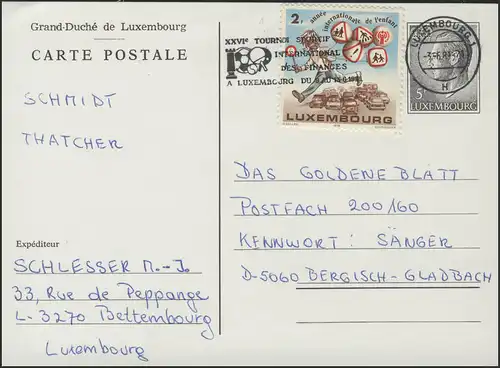 Grand-Duché de Luxembourg
CARTE POSTALE
SCHMIDT
THATCHER
Expéditeur
SCHLESSER M.-J.
33, Rue de Peppange
L-3270 Bettembourg
Luxembourg
XXVIe TOURNOI SPORTIF
INTERNATIONAL
DES FINANCES
A LUXEMBOURG DU
2F
année internationale de l'enfant
LUXEMBOURG
LUXEMBOURG 1
H
5F
LUXEMBOURG
DAS GOLDENE BLATT
POSTFACH 200160
KENNWORT: SÄNGER
D-5060 BERGISCH-GLADBACH